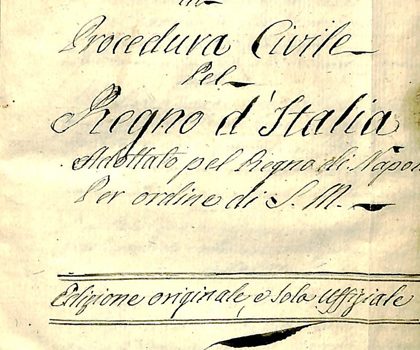 di
Procedura Civile
Pel
Regno d'Italia
Adottato pel Regno di Napo
Per ordine di S. M.
Edizione originale, e sola Uffiziale